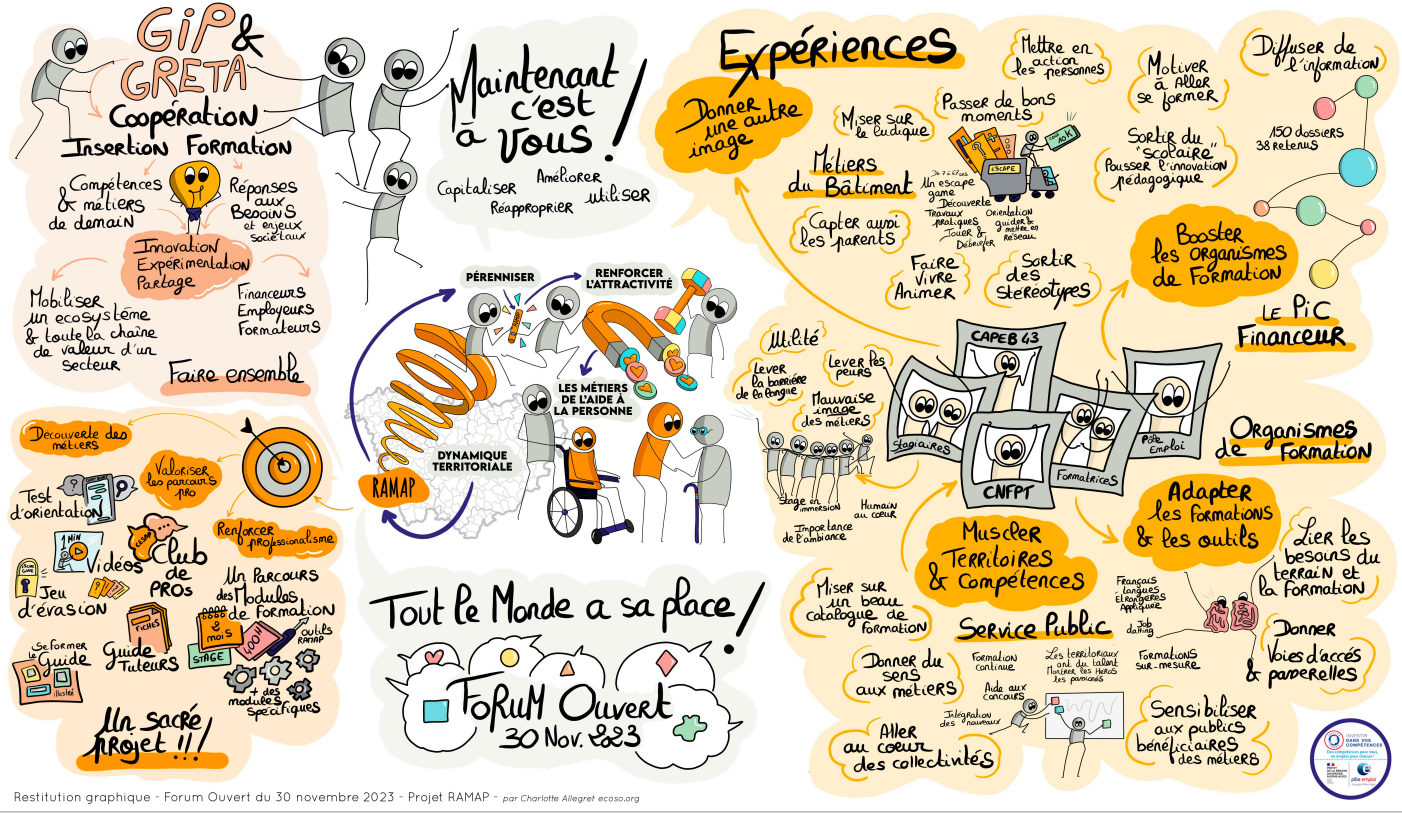 GiP &
GRETA
Coopération
Insertion Formation
Compétences
& métiers
de demain
Réponses
aux
Besoins
et enjeux
sociétaux
Innovation
Expérimentation
Partage
Mobiliser
un ecosystème
& toute la chaîne
de valeur d'un
secteur
Financeurs
Employeurs
Formateurs
Faire ensemble
Découverte des
métiers
Valoriser
les parcours
pro
Renforcer
professionalisme
Test
d'orientation
1 MIN
Vidéos
CESAP
Club
de
PROs
ESCAPE GAME
Jeu
d'évasion
Un Parcours
des Modules
de Formation
FICHES
Guide
Tuteurs
2
mois
STAGE
400H
outils
RAMAP
Se former
le Guide
illustré
+ des
modules
Spécifiques
Un sacré
projet !!!
Maintenant
c'est
à vous !
Capitaliser
Améliorer
Réapproprier
utiliser
PÉRENNISER
RENFORCER
L'ATTRACTIVITÉ
LES MÉTIERS
DE L'AIDE À
LA PERSONNE
DYNAMIQUE
TERRITORIALE
RAMAP
Tout le Monde a sa place !
FoRuM Ouvert
30 Nov. 2023
Expériences
Donner
une autre
image
Mettre en
action
les personnes
Motiver
à Aller
se former
Diffuser de
l'information
Miser sur
le ludique
Passer de bons
moments
150 dossiers
38 retenus
Sortir du
"scolaire"
Pousser l'innovation
pédagogique
Métiers
du Bâtiment
ESCAPE
10K
De 7 à 67 ans
Un escape
game
Découverte
Travaux
pratiques
Jouer &
Débriefer
Orientation
guider &
mettre en
réseau
Capter aussi
les parents
Faire
vivre
Animer
Sortir
des
stéréotypes
Booster
les organismes
de Formation
LE PiC
Financeur
Utilité
Lever
la barrière
de la langue
Lever les
peurs
Mauvaise
image
des métiers
Stage en
immersion
Humain
au coeur
Importance
de l'ambiance
CAPEB 43
Stagiaires
CNFPT
Formatrices
Pôle
Emploi
Organismes
de Formation
Muscler
Territoires
& Compétences
Adapter
les formations
& les outils
Lier les
besoins du
terrain et
la Formation
Français
langues
Étrangères
Appliquée
Job
dating
Miser sur
un beau
catalogue de
formation
Service Public
Donner
Voies d'accés
& passerelles
Donner du
sens
aux métiers
Formation
continue
Les territoriaux
ont du talent
Montrer les Héros
les passionés
Formations
sur-mesure
Aide aux
concours
Intégration
des nouveaux
Aller
au coeur
des collectivités
Sensibiliser
aux publics
bénéficiaires
des métiers
INVESTIR
DANS VOS
COMPÉTENCES
Des compétences pour tous,
un emploi pour chacun !
pôle emploi
Restitution graphique - Forum Ouvert du 30 novembre 2023 - Projet RAMAP - par Charlotte Allegret ecoso.org